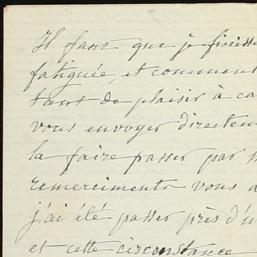 Il faut que je finisse
fatiguée, et comment
tant de plaisir à ca
vous envoyer directem
la faire passer par
remerciments vous a
j'ai été passer près d'u
et cette circonstance